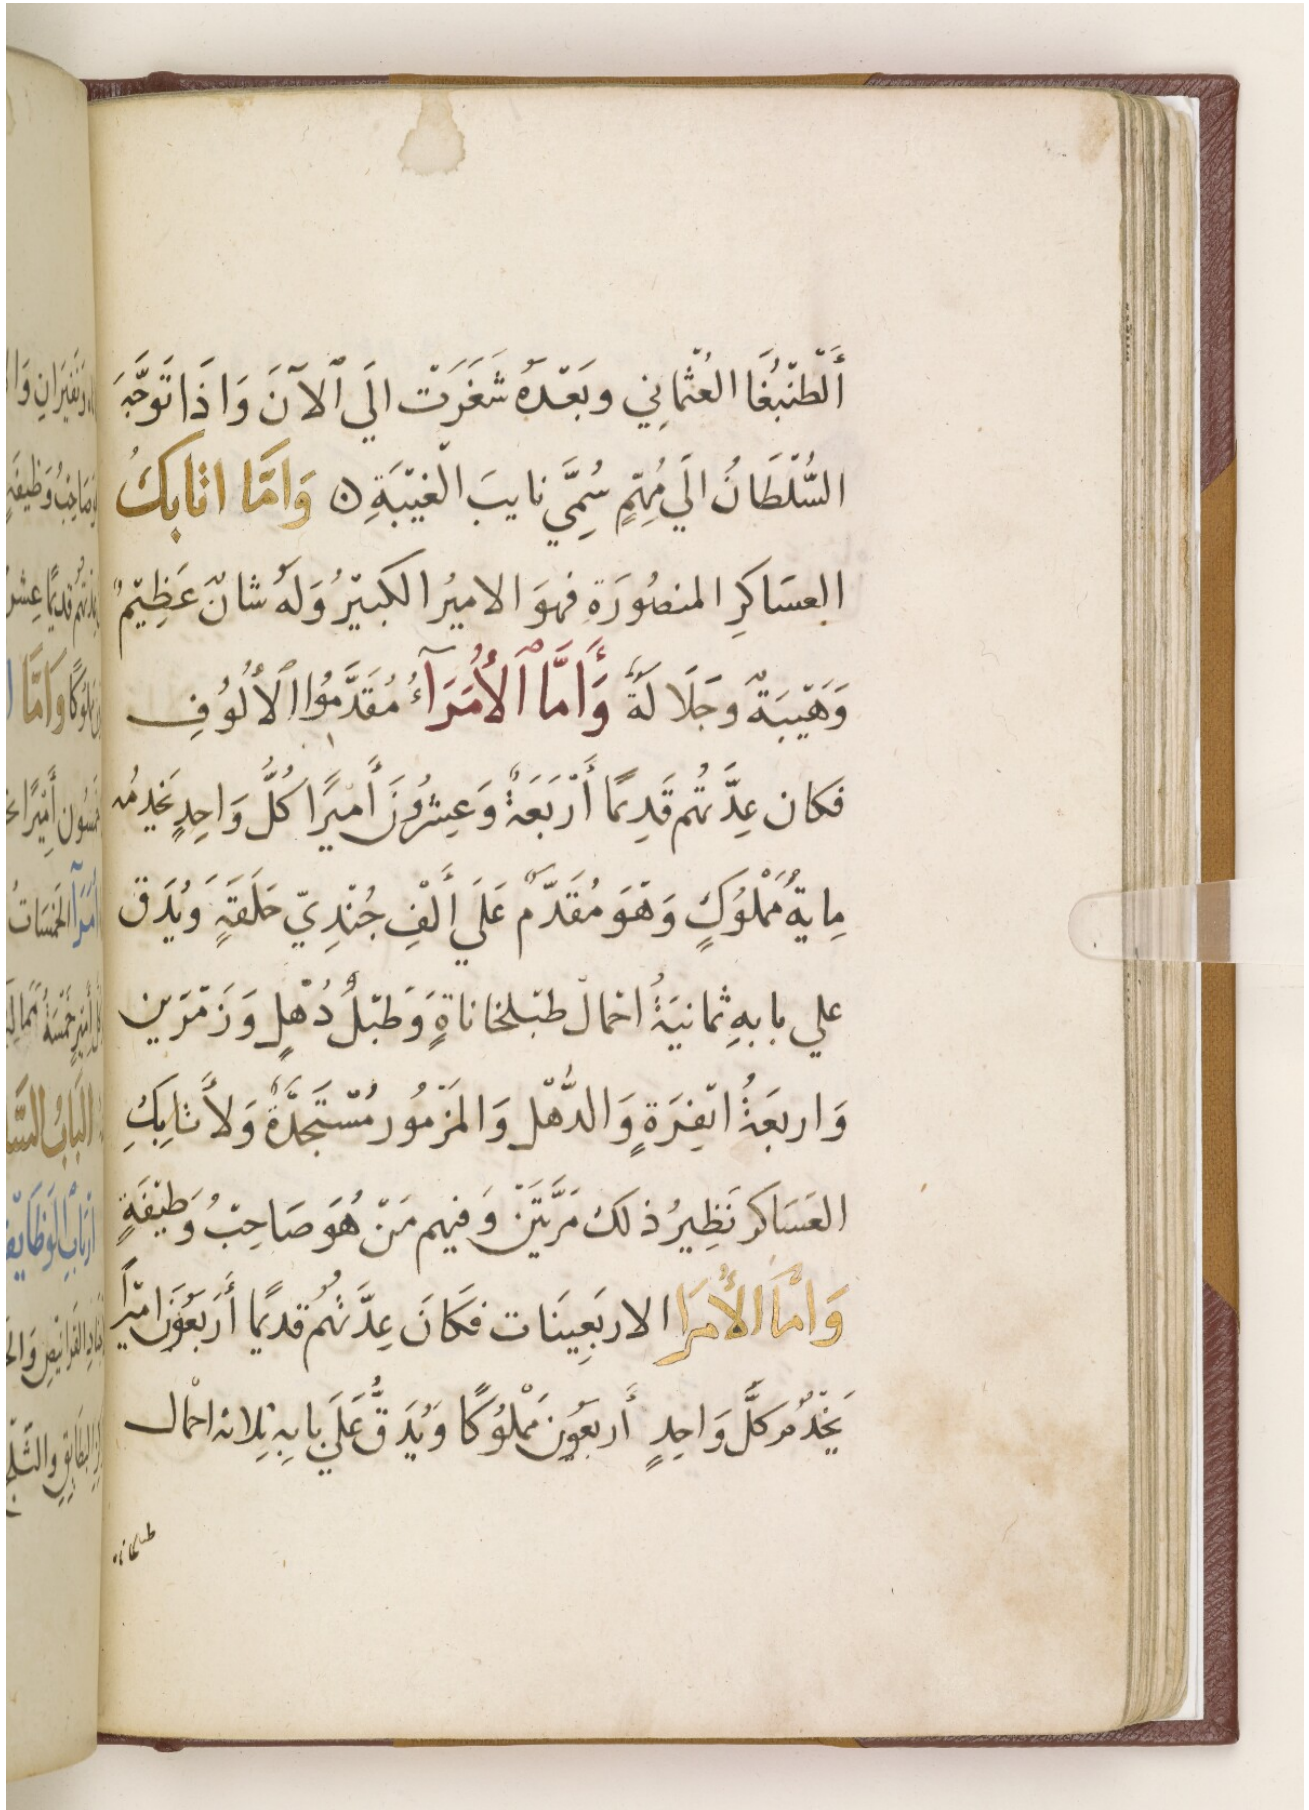 أَلْطُنْبُغَا العُثْمَانِي وبَعْدَهُ شَغَرَتْ الَي ٱلآنَ وَاذَا تَوَجَّهَ
السُّلْطَانُ الَي مُهِمٍّ سُمِّيَ نايبَ الْغَيْبَةِ ن وَامَّا اتابكُ
العسَاكِرِ المنصُورَةِ فهوَ الاميرُ الكبيْرُ وَلَهُ شانٌ عَظِيْمٌ
وَهَيْبَةٌ وجَلَالَةٌ وَأَمَّا ٱلْأُمَرَآءُ مُقَدَّمُوا ٱلْأُلُوُفِ
فكان عِدَّتُهُم قَدِيمًا أَرْبَعَةٌ وَعِشرُونَ أَميْرًا كُلُّ وَاحِدٍ يَخدِمُه
مِايةُ مَمْلُوكٍ وَهْوَ مُقَدَّمٌ عَلَي أَلْفِ جُنْدِيّ حَلَقَةٍ وَيُدَق
علي بابهِ ثمانيَةُ احْمال طبْلخاناةٍ وَطَبْلُ دُهْلٍ وَزَمْرَين
وَاربعَةُ انْفِرَةٍ وَالدُّهْل وَالمَزْمُور مُسْتَجَدَّةٌ وَلأَتابِكِ
العَسَاكر نَظِيرُ ذلك مَرَّتَيْنِ وَفيهم مَنْ هُوَ صَاحِبُ وَظيْفَةٍ
وَامَّا الأُمرَا الاربَعِينَات فكَانَ عِدَّتُهُم قديمًا أَرَبَعُوَنَ اميْرًا
يَخْدُمُ كلَّ وَاحِدٍ أَربعَوُنَ مَمْلُوُكًا وَيُدَقُّ عَلَي بابِهِ ثلاثه احْمال
طبلخاناه